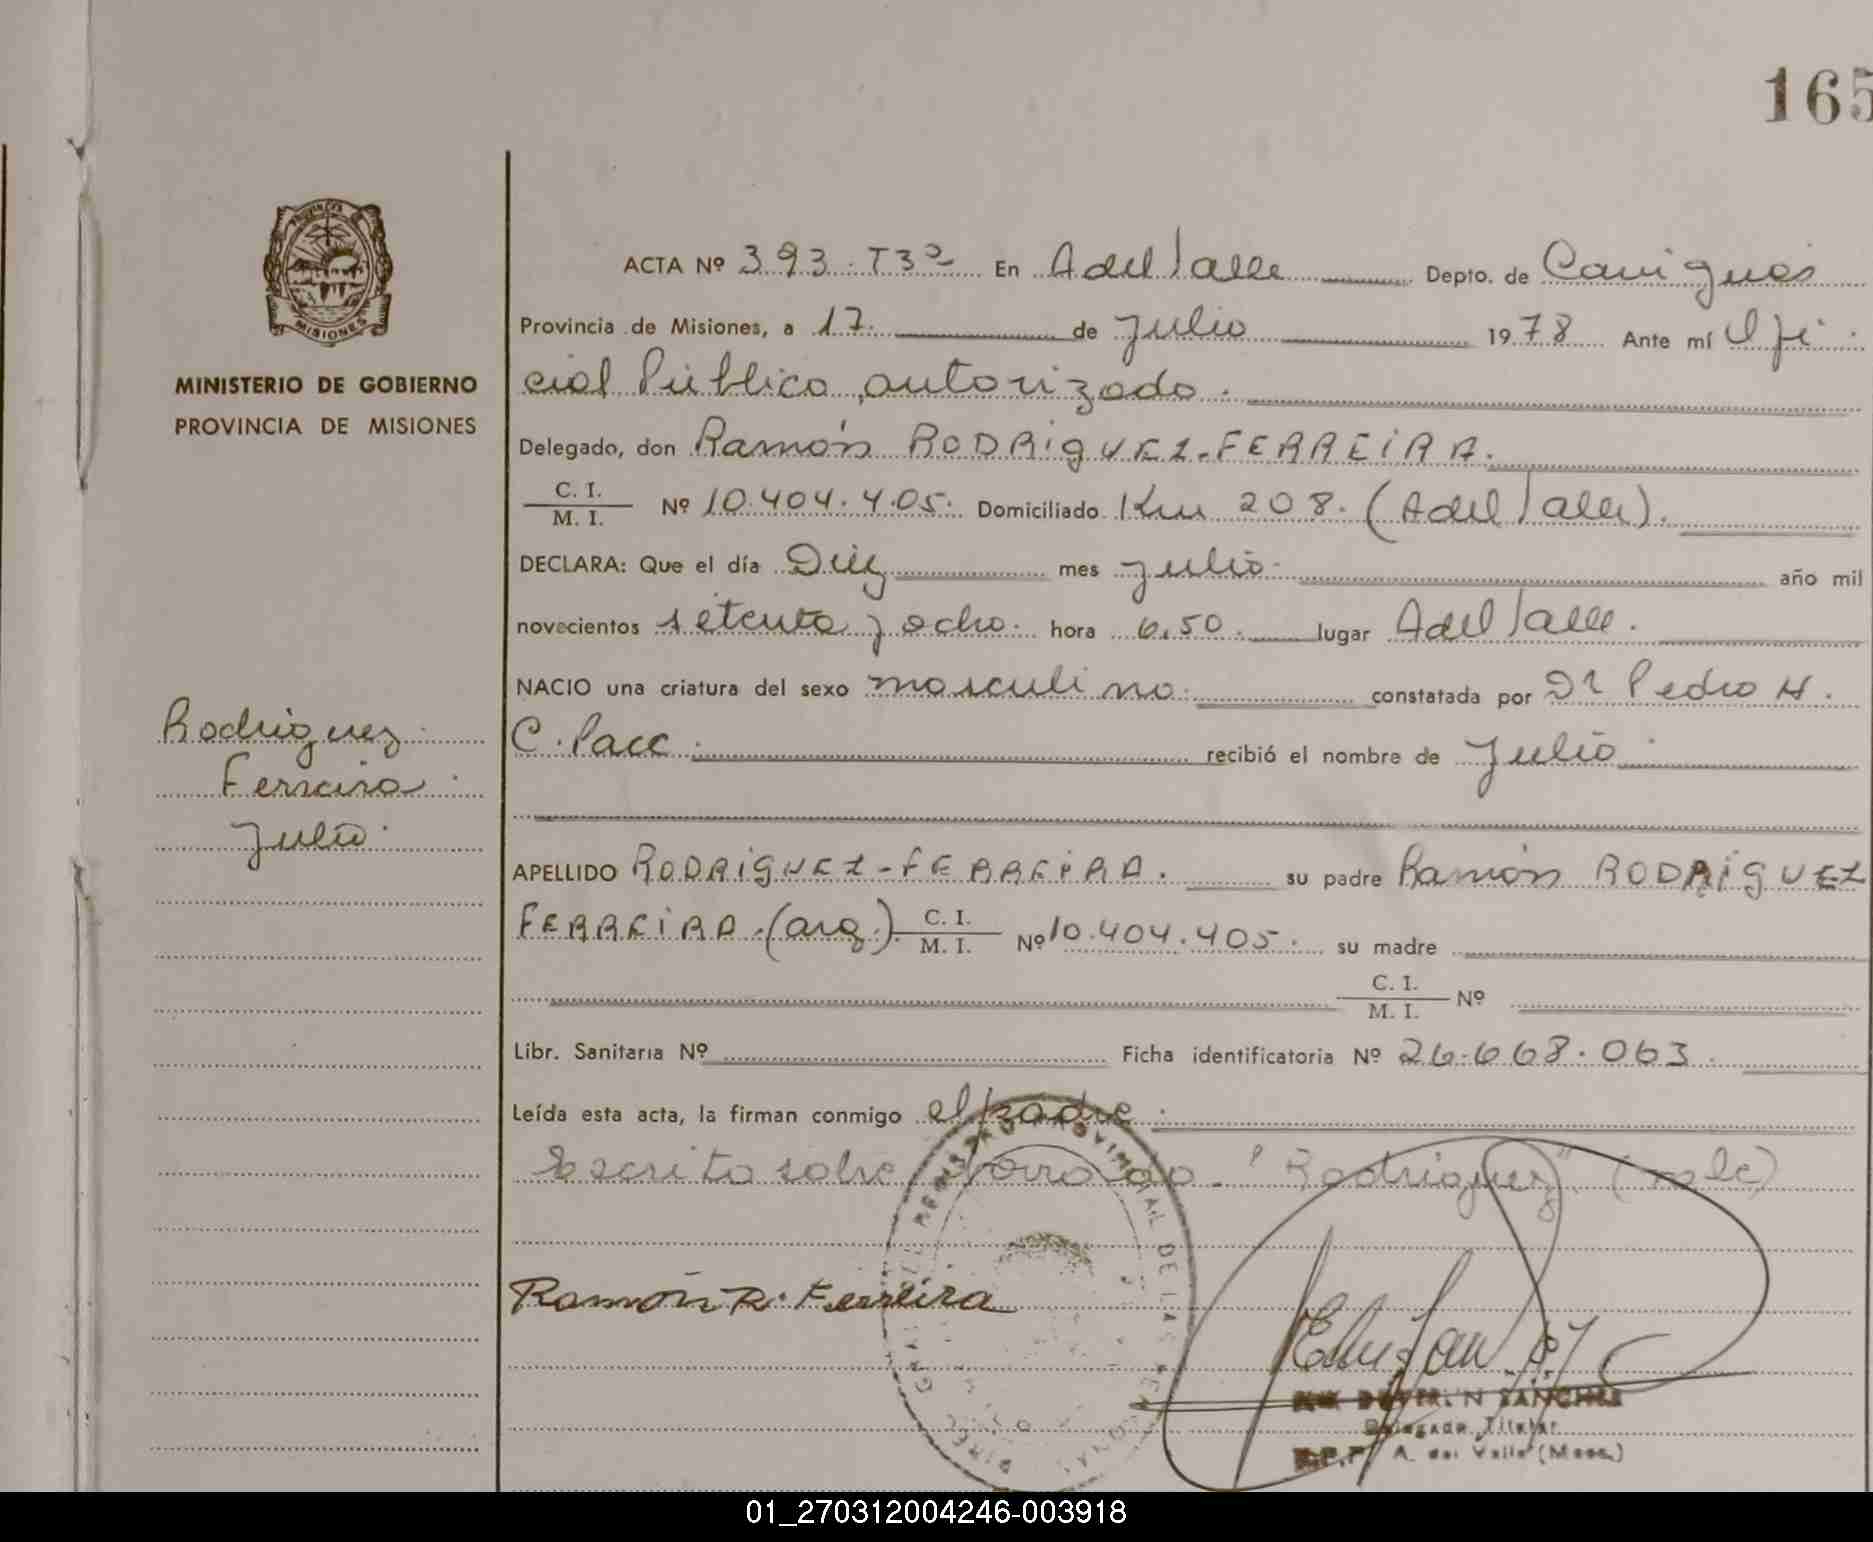 165
ACTA Nº 393-T3º En A del Valle Depto. de Cainguás
Provincia de Misiones, a 17 de Julio 1978 Ante mí Ofi
cial Público autorizado.
Delegado, don Ramón RODRIGUEZ-FERREIRA.
C. I.
M. I. Nº 10.404.405. Domiciliado Km 208. (A del Valle).
DECLARA: Que el día Diez mes Julio año mil
novecientos setenta y ocho. hora 6,50. lugar A del Valle.
MINISTERIO DE GOBIERNO
PROVINCIA DE MISIONES
MISIONES
NACIO una criatura del sexo masculino constatada por Dr Pedro H.
C. Pacc. recibió el nombre de Julio
Rodriguez
Ferreira
Julio.
APELLIDO RODRIGUEZ-FERREIRA. su padre Ramón RODRIGUEZ
FERREIRA.(arg.) C. I.
M. I. Nº 10.404.405. su madre
C. I.
M. I. Nº
Libr. Sanitaria Nº Ficha identificatoria Nº 26.668.063.
Leída esta acta, la firman conmigo el padre.
Escrito sobre borrado. "Rodriguez" (vale)
Ramón R. Ferreira
SANCHEZ
Delegado Titular
A. del Valle (Mnes.)
01_270312004246-003918